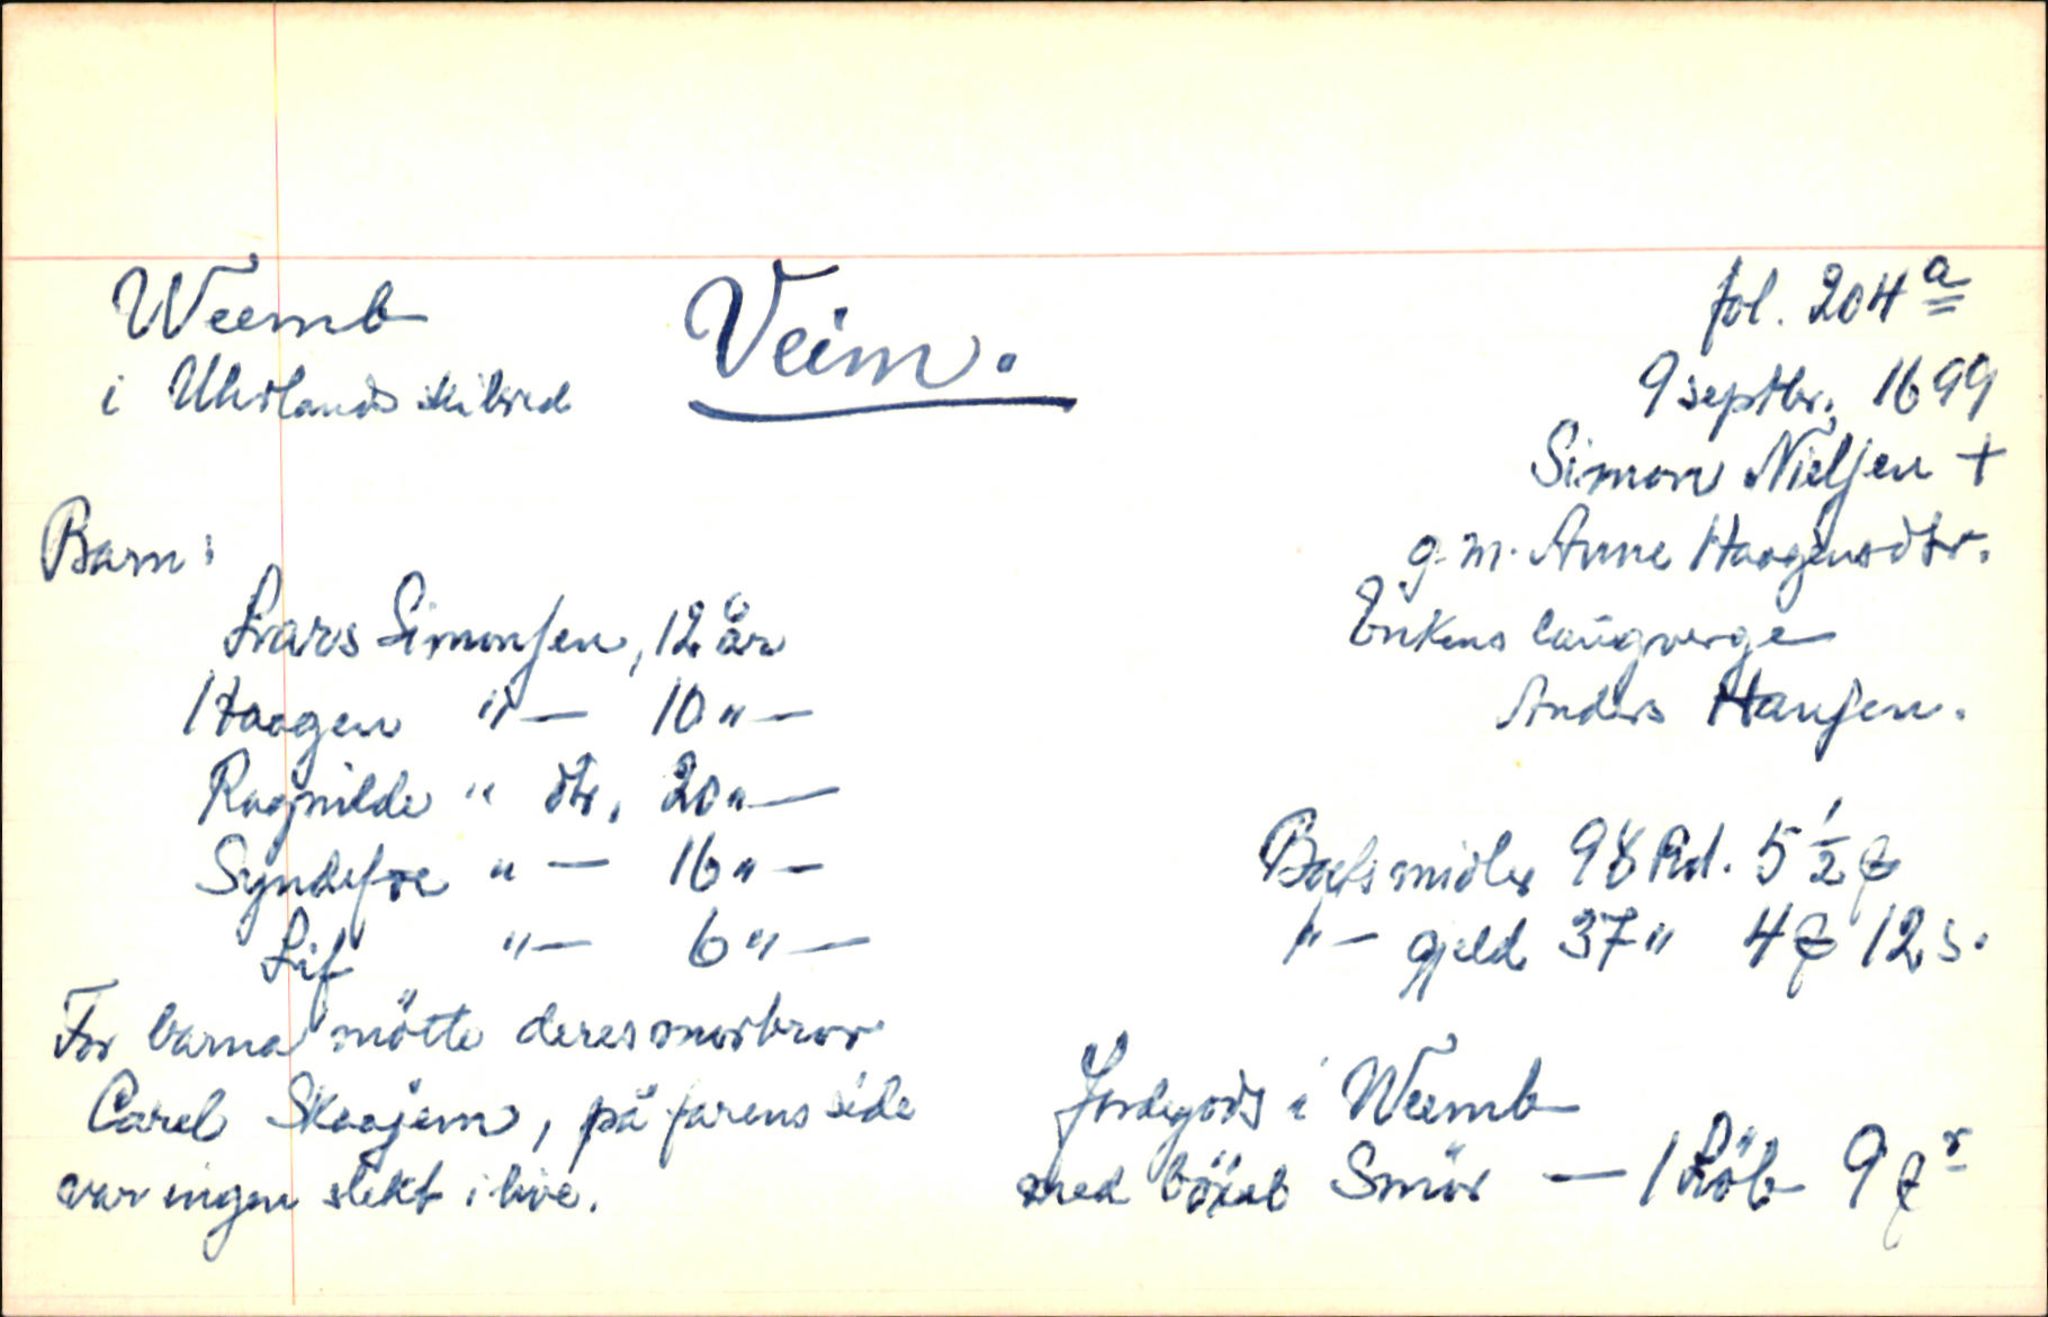 Weemb
i Uhrlands skibred
Veim.
fol. 204 a
9 septbr. 1699
Simon Nielsen +
g.m. Anne Haagensdtr.
Enkens laugverge
Anders Hansen.
Barn:
Lars Simonsen, 12 år
Haagen " — 10 " —
Ragnilde " dtr, 20 " —
Syndefoe " — 16 " —
Lif " — 6 " —
For barna møtte deres morbror
Carel Skaajem, på farens side
var ingen slekt i live.
Boets midler 98 Rd. 5 1/2
" — gjeld 37 " 4 12 s.
Jordegods i Weemb
med böxel Smör — 1 Löb 9